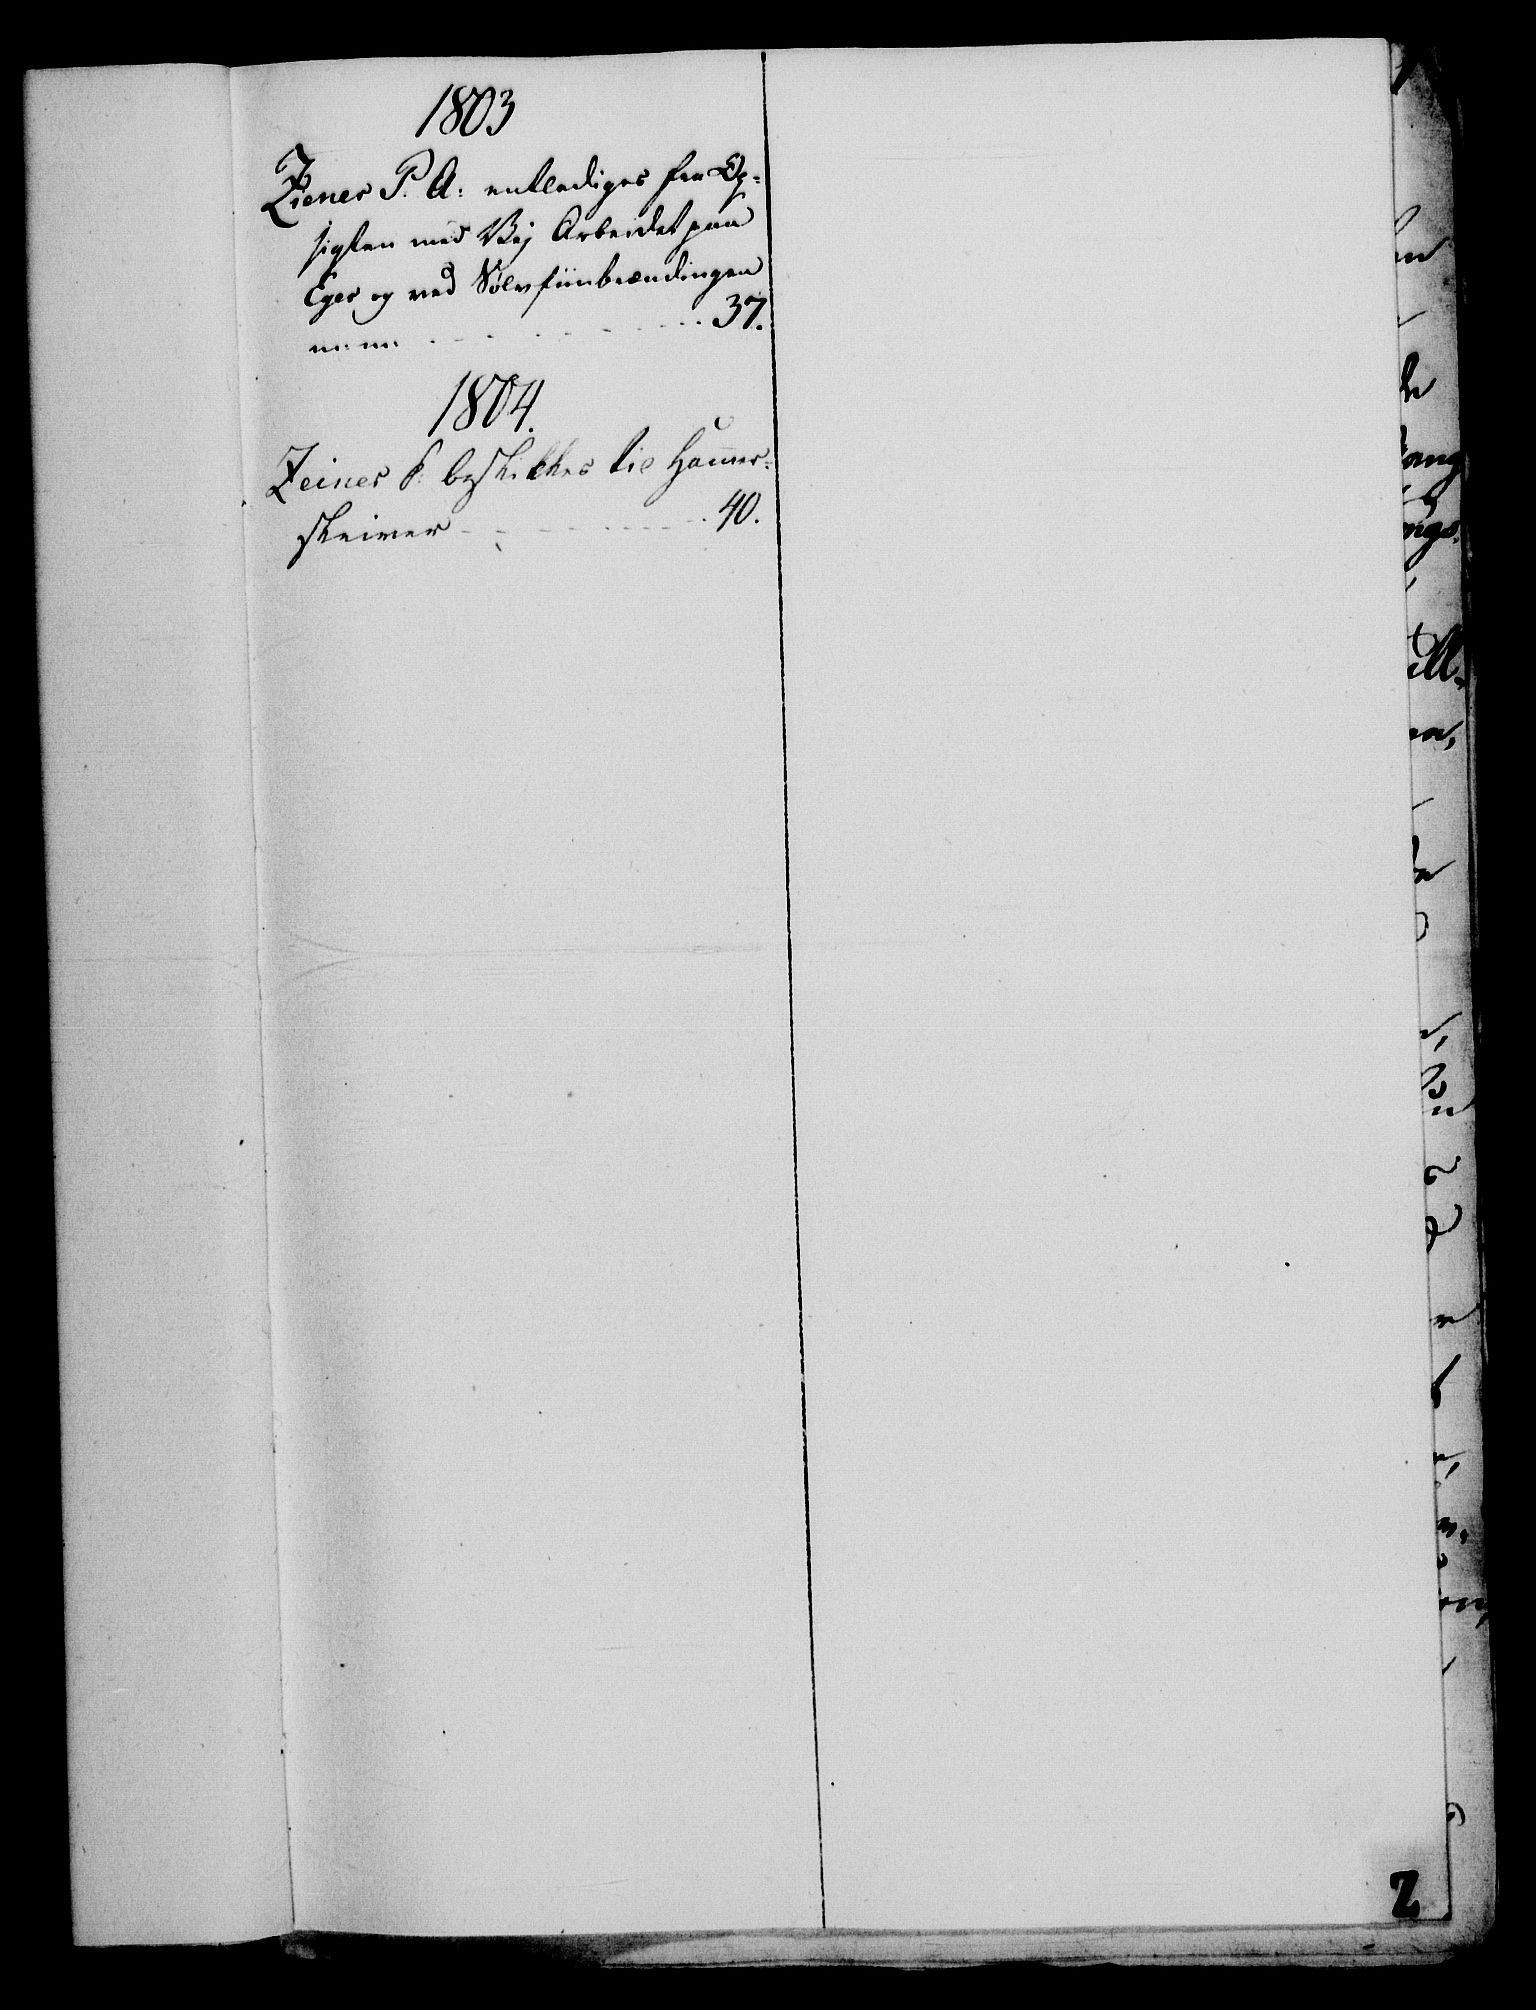 1803
Ziener P. A: entlediges fra Op-
sigten med Vej Arbeidet paa
Eger og ved Sølvfiinbrændingen
m: m: 37.
1804.
Zeiner P. beskikkes til Hammer-
skriver 40.
Z